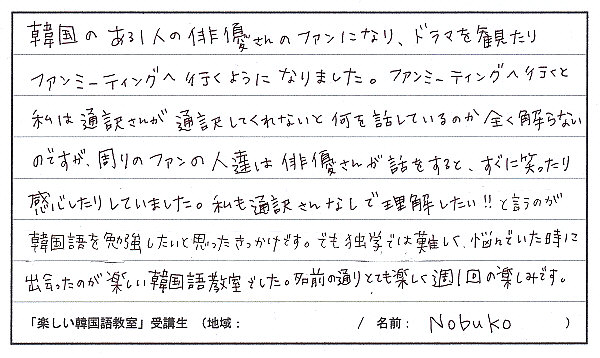 韓国のある1人の俳優さんのファンになり、ドラマを観たり
ファンミーティングへ行くようになりました。ファンミーティングへ行くと
私は通訳さんが通訳してくれないと何を話しているのか全く解らない
のですが、周りのファンの人達は俳優さんが話をすると、すぐに笑ったり
感心したりしていました。私も通訳さんなしで理解したい!!と言うのが
韓国語を勉強したいと思ったきっかけです。でも独学では難しく、悩んでいた時に
出会ったのが楽しい韓国語教室でした。名前の通りとても楽しく週1回の楽しみです。
「楽しい韓国語教室」受講生 (地域: / 名前: Nobuko )